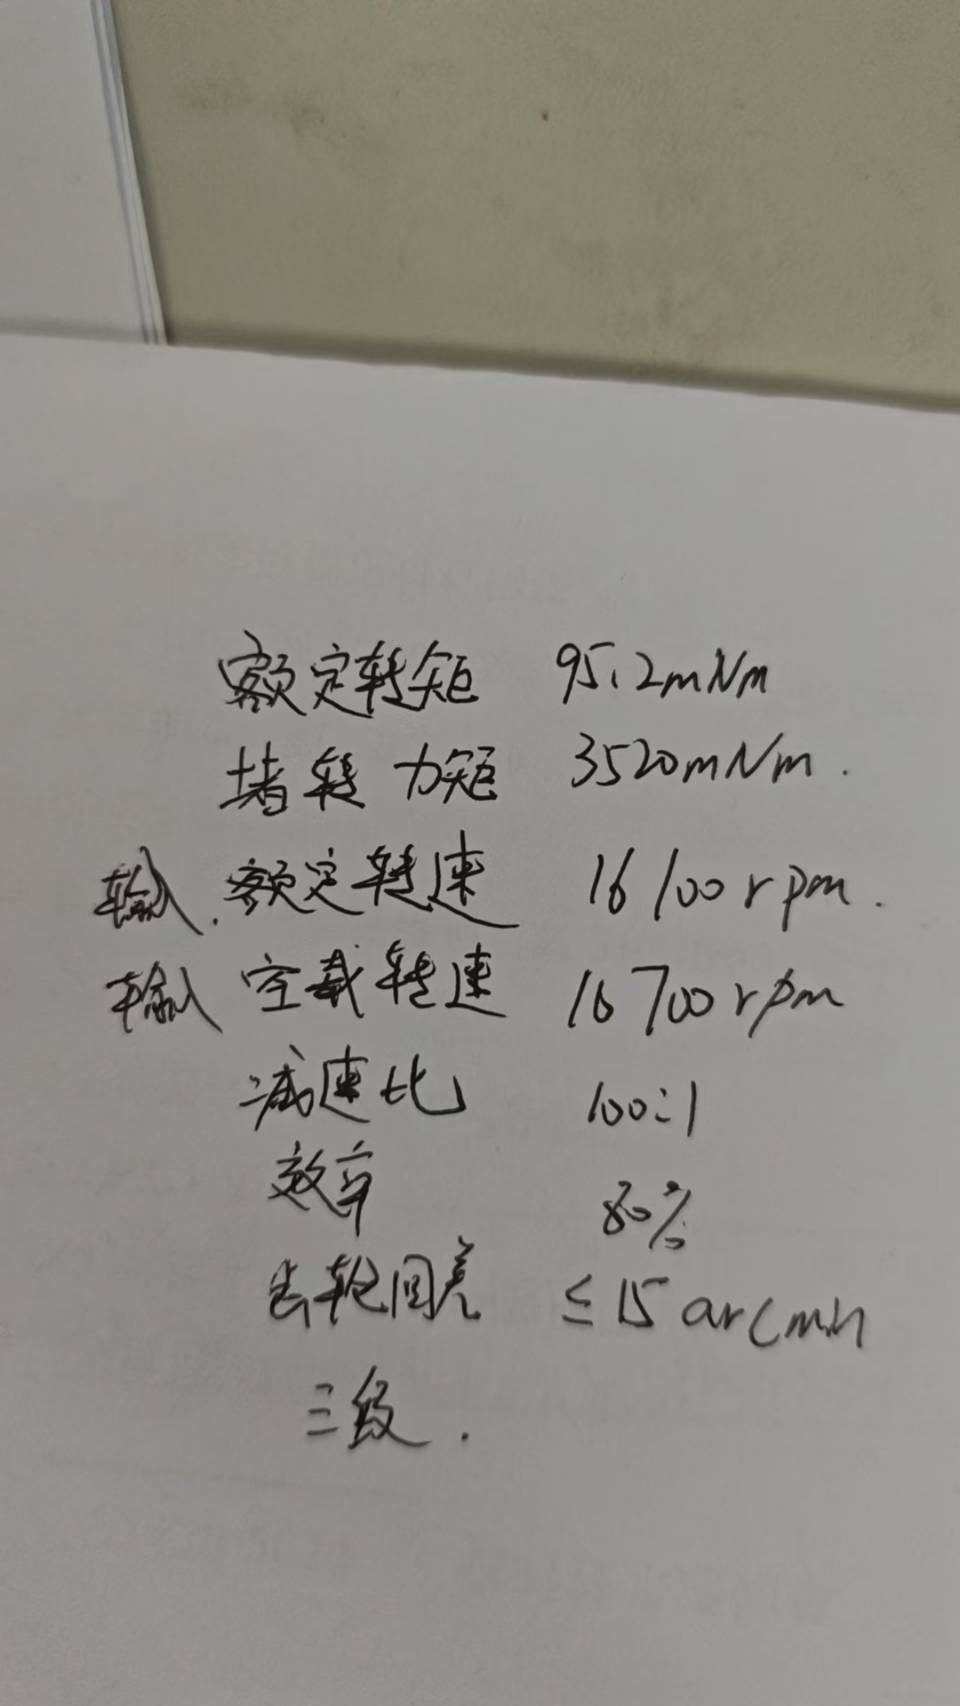 额定转矩 95.2mNm
堵转力矩 3520mNm.
输入.额定转速 16100rpm.
输入 空载转速 16700rpm
减速比 100:1
效率 80%
齿轮回差 ≤15arcmin
三级.